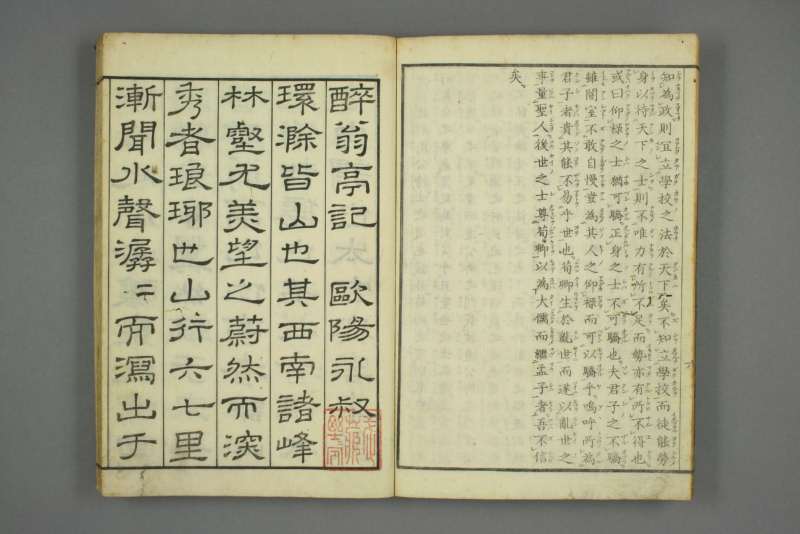 知為政則宜立學校之法於天下矣不知立學校而徒能勞
身以待天下之士則不唯力有所不足而勢亦有所不得也
或曰仰祿之士猶可驕正身之士不可驕也夫君子之不驕
雖闇室不敢自慢豈為其人之仰祿而可以驕乎嗚呼所為
君子者貴其能不易乎世也荀卿生於亂世而遂以亂世之
事量聖人後世之士尊荀卿以為大儒而繼孟子者吾不信
矣
六
醉翁亭記 歐陽永叔
環滁皆山也其西南諸峰
林壑尤美望之蔚然而深
秀者琅琊也山行六七里
漸聞水聲潺〻而瀉出于